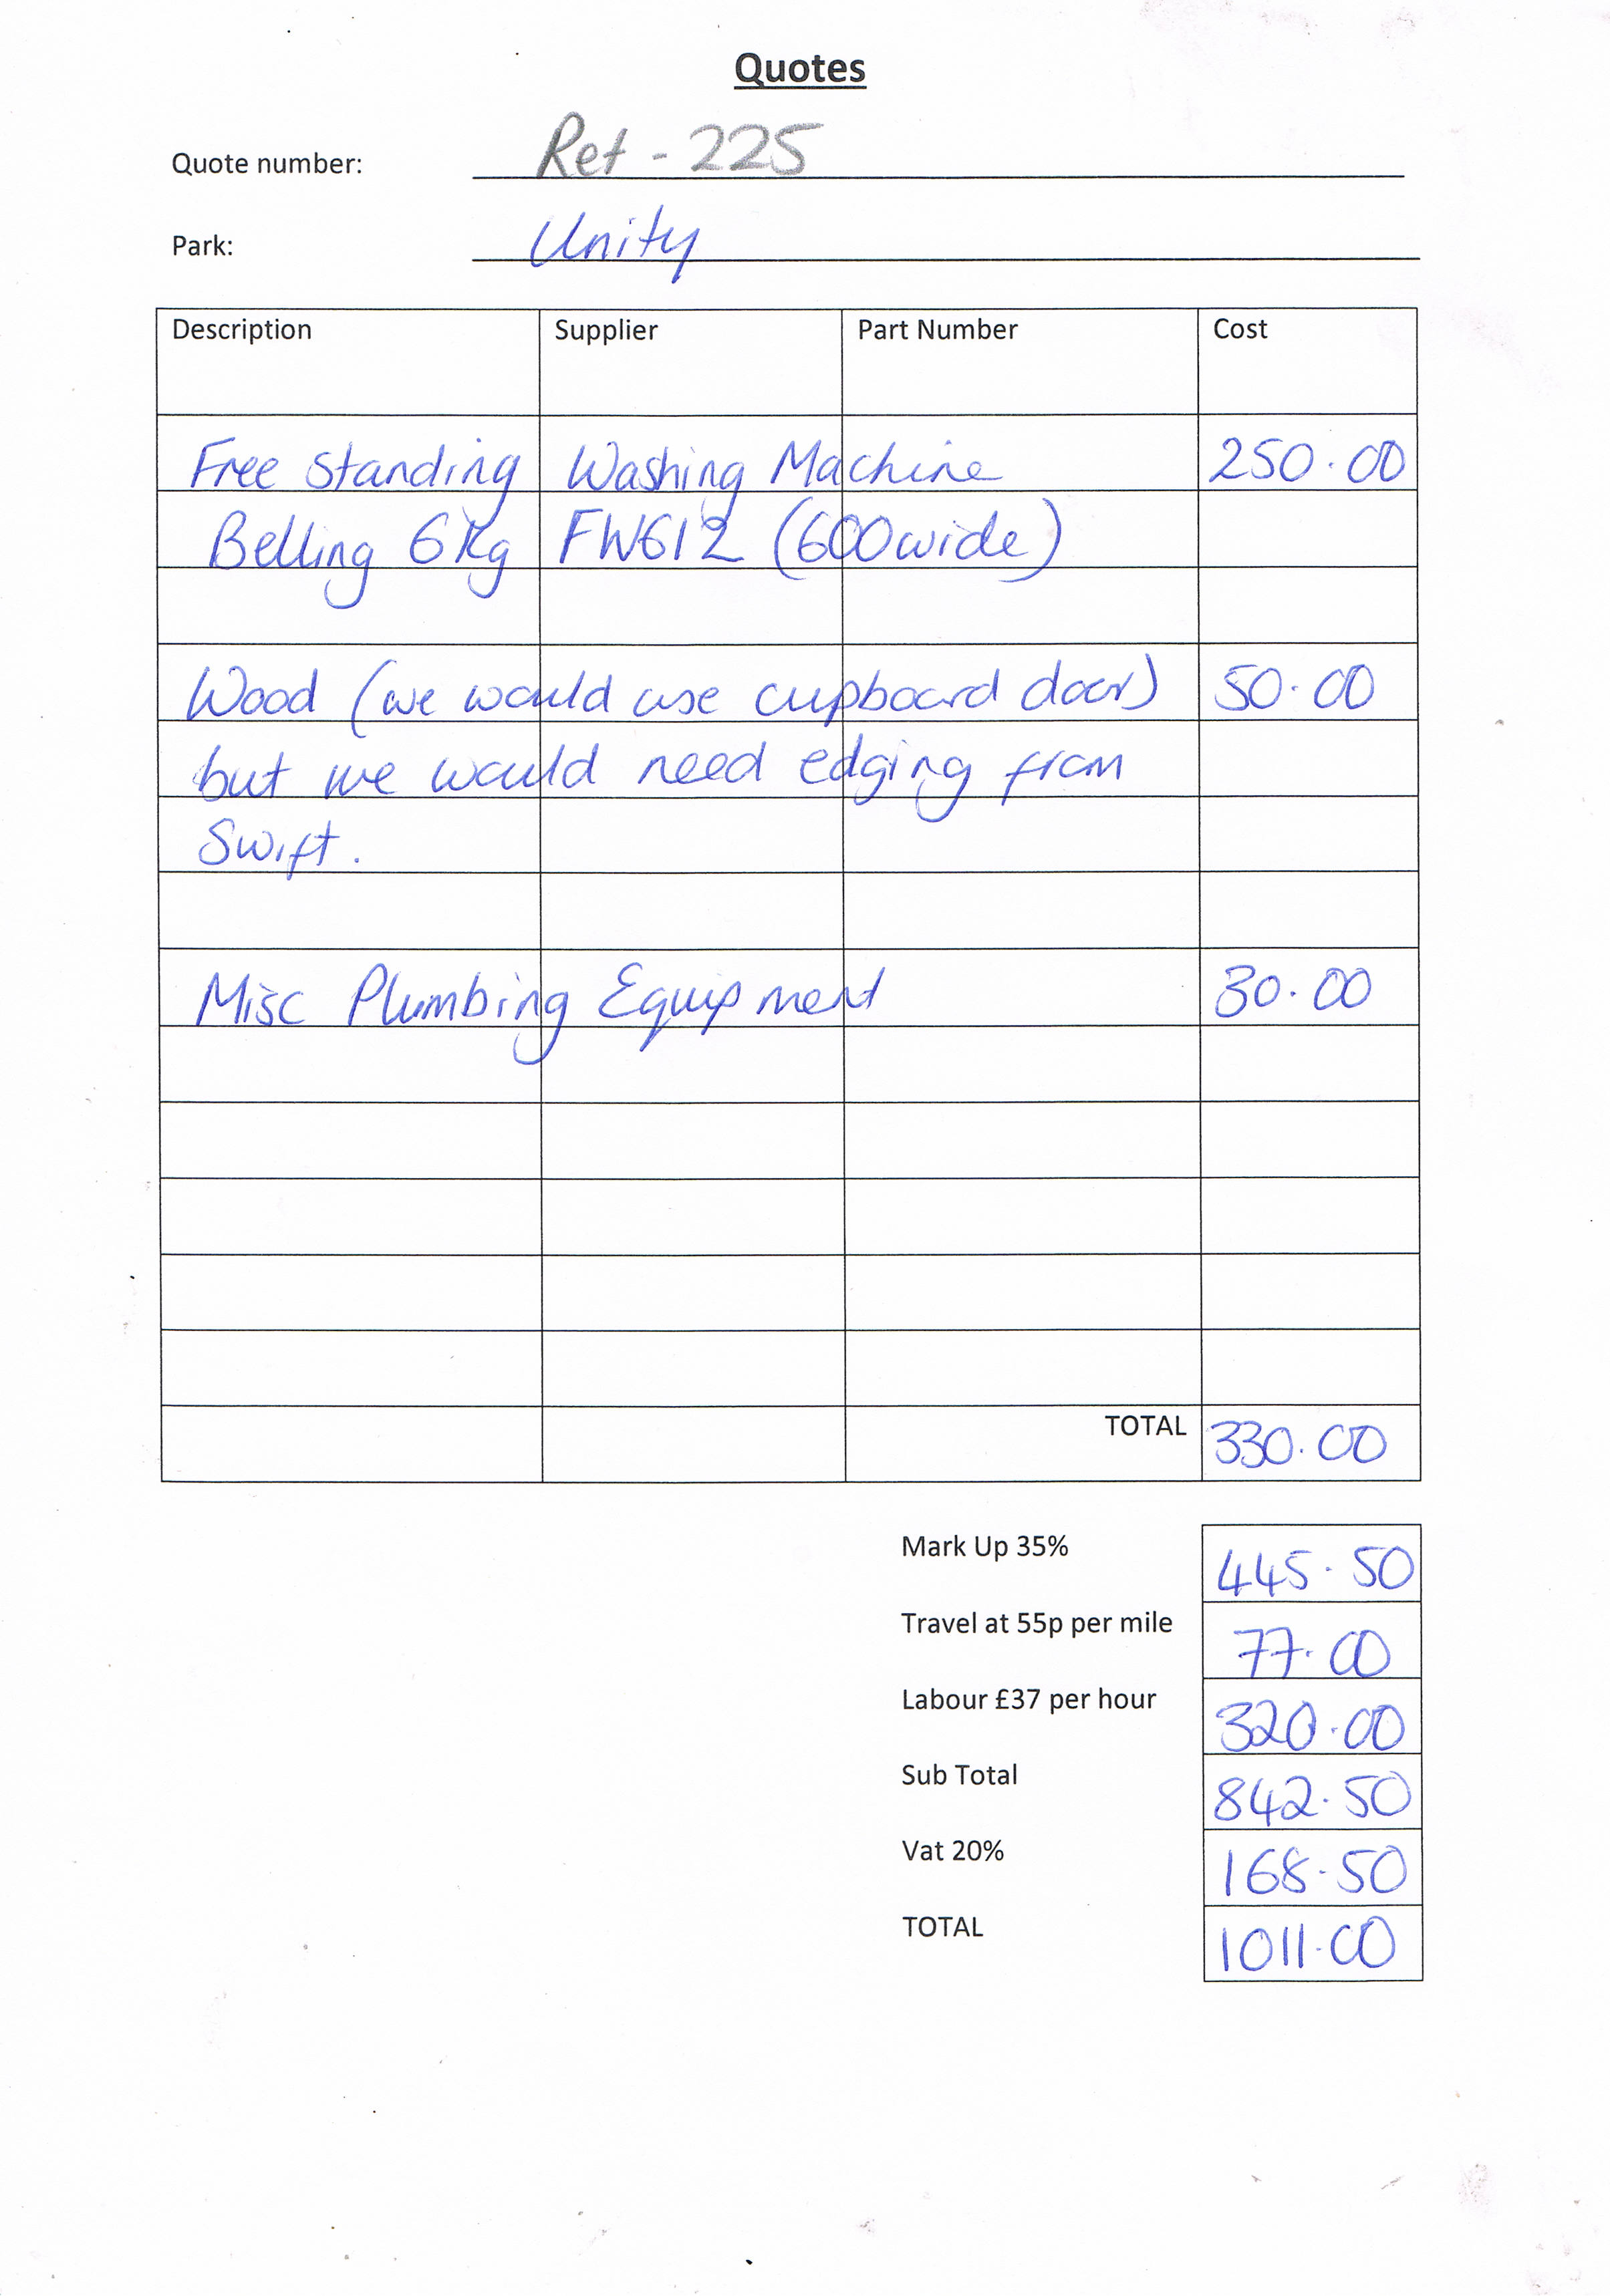 Quotes
Quote number: Ret - 225
Park: Unity
Description Supplier Part Number Cost
Free standing Washing Machine 250.00
Belling 6Kg FW612 (600wide)
Wood (we would use cupboard door) 50.00
but we would need edging from
Swift.
Misc Plumbing Equipment 30.00
TOTAL 330.00
Mark Up 35% 445.50
Travel at 55p per mile 77.00
Labour £37 per hour 320.00
Sub Total 842.50
Vat 20% 168.50
TOTAL 1011.00